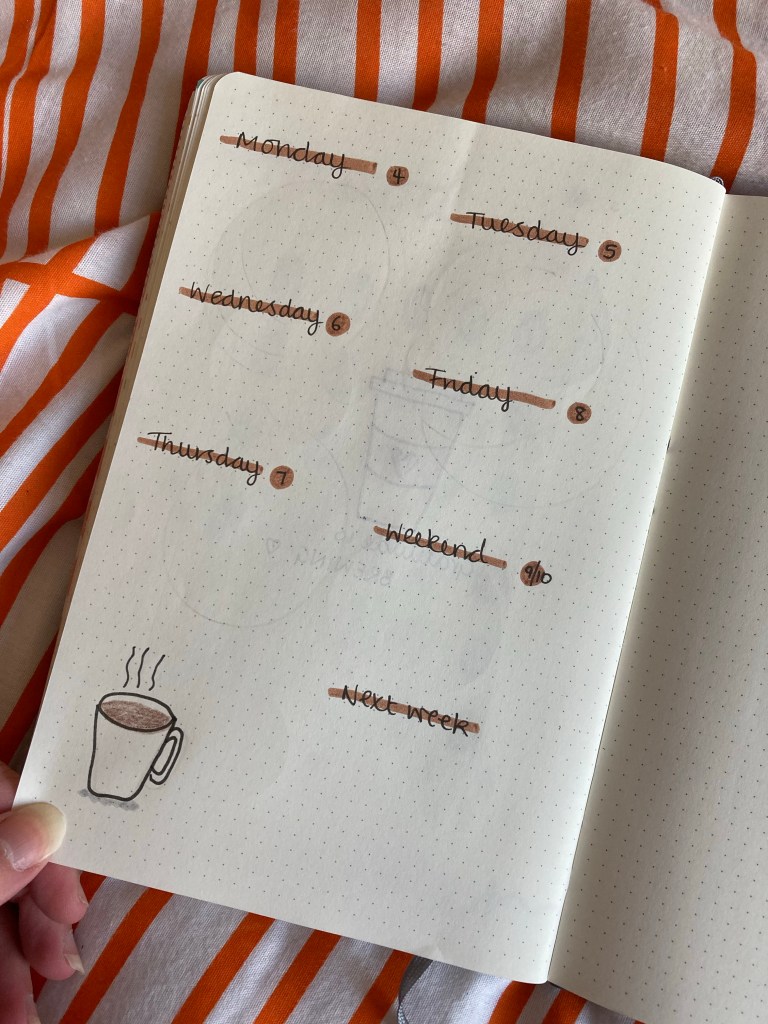 Monday 4
Tuesday 5
Wednesday 6
Thursday 7
Friday 8
Weekend 9/10
Next week